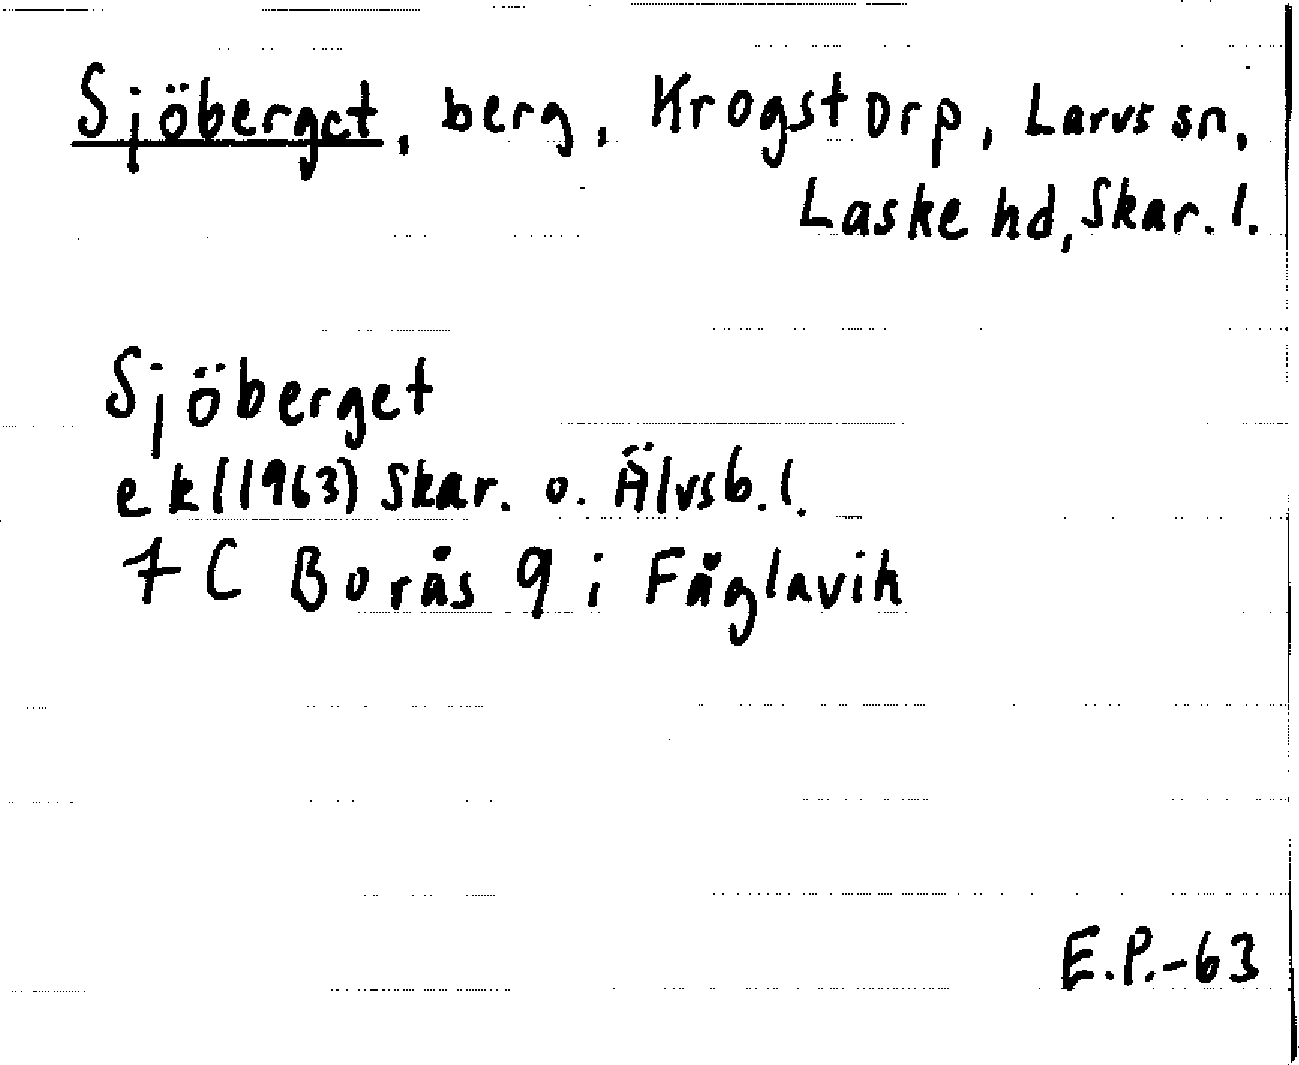 Sjöberget, berg, Krogstorp, Larvs sn,
Laske hd, Skar. l.
Sjöberget
ek (1963) Skar. o. Älvsb. l.
7 C Borås 9 i Fåglavik
E.P.-63